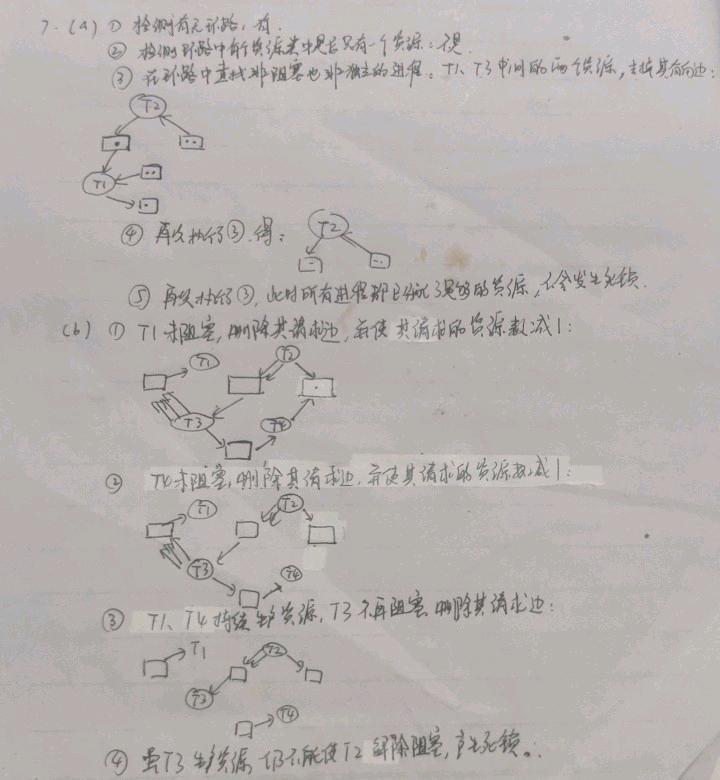 7. (a) ① 检测有无环路，有.
② 检测环路中每个资源类中是否只有一个资源：不是.
③ 在环路中查找非阻塞也非独立的进程。T1、T3中间的两个资源，去掉其有向边：
T2
T1
④ 再次执行③.得：
T2
⑤ 再次执行③, 此时所有进程都已分配了足够的资源，不会发生死锁.
(b) ① T1未阻塞，删除其请求边，并使其请求的资源数减1：
T1 T2
T3 T4
② T4未阻塞,删除其请求边，并使其请求的资源数减1：
T1 T2
T3 T4
③ T1、T4持续生产资源，T3不再阻塞 删除其请求边：
T1 T2
T3
T4
④ 虽T3生产资源 仍不能使T2解除阻塞，产生死锁。